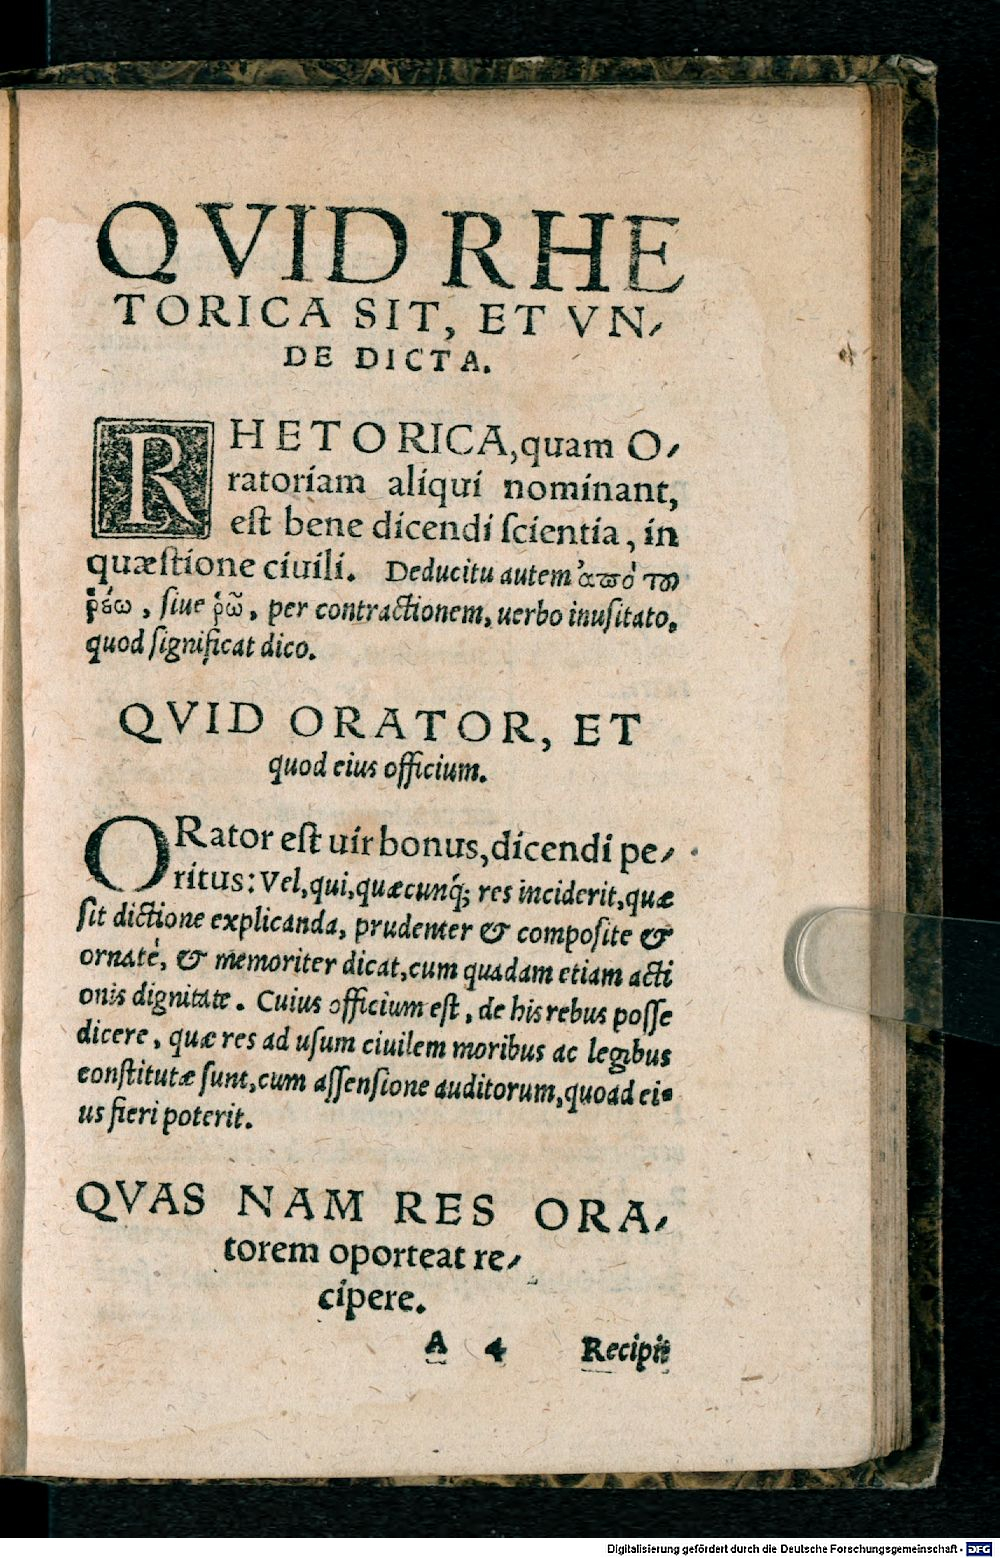 QVID RHE
TORICA SIT, ET VN⸗
DE DICTA.
RHETORICA, quam O⸗
ratoriam aliqui nominant,
eſt bene dicendi ſcientia, in
quæſtione ciuili. Deducitu autem ἀπὸ τοῦ
ῥέω, ſiue ῥῶ, per contractionem, uerbo inuſitato,
quod ſignificat dico.
QVID ORATOR, ET
quod eius officium.
ORator eſt uir bonus, dicendi pe⸗
ritus: Vel, qui, quæcunq; res inciderit, quæ
ſit dictione explicanda, prudenter & compoſite &
ornatè, & memoriter dicat, cum quadam etiam acti
onis dignitate. Cuius officium eſt, de his rebus poſſe
dicere, quæ res ad uſum ciuilem moribus ac legibus
conſtitutæ ſunt, cum aſſenſione auditorum, quoad ei⸗
us fieri poterit.
QVAS NAM RES ORA⸗
torem oporteat re⸗
cipere.
A 4 Recipit
Digitalisierung gefördert durch die Deutsche Forschungsgemeinschaft - DFG